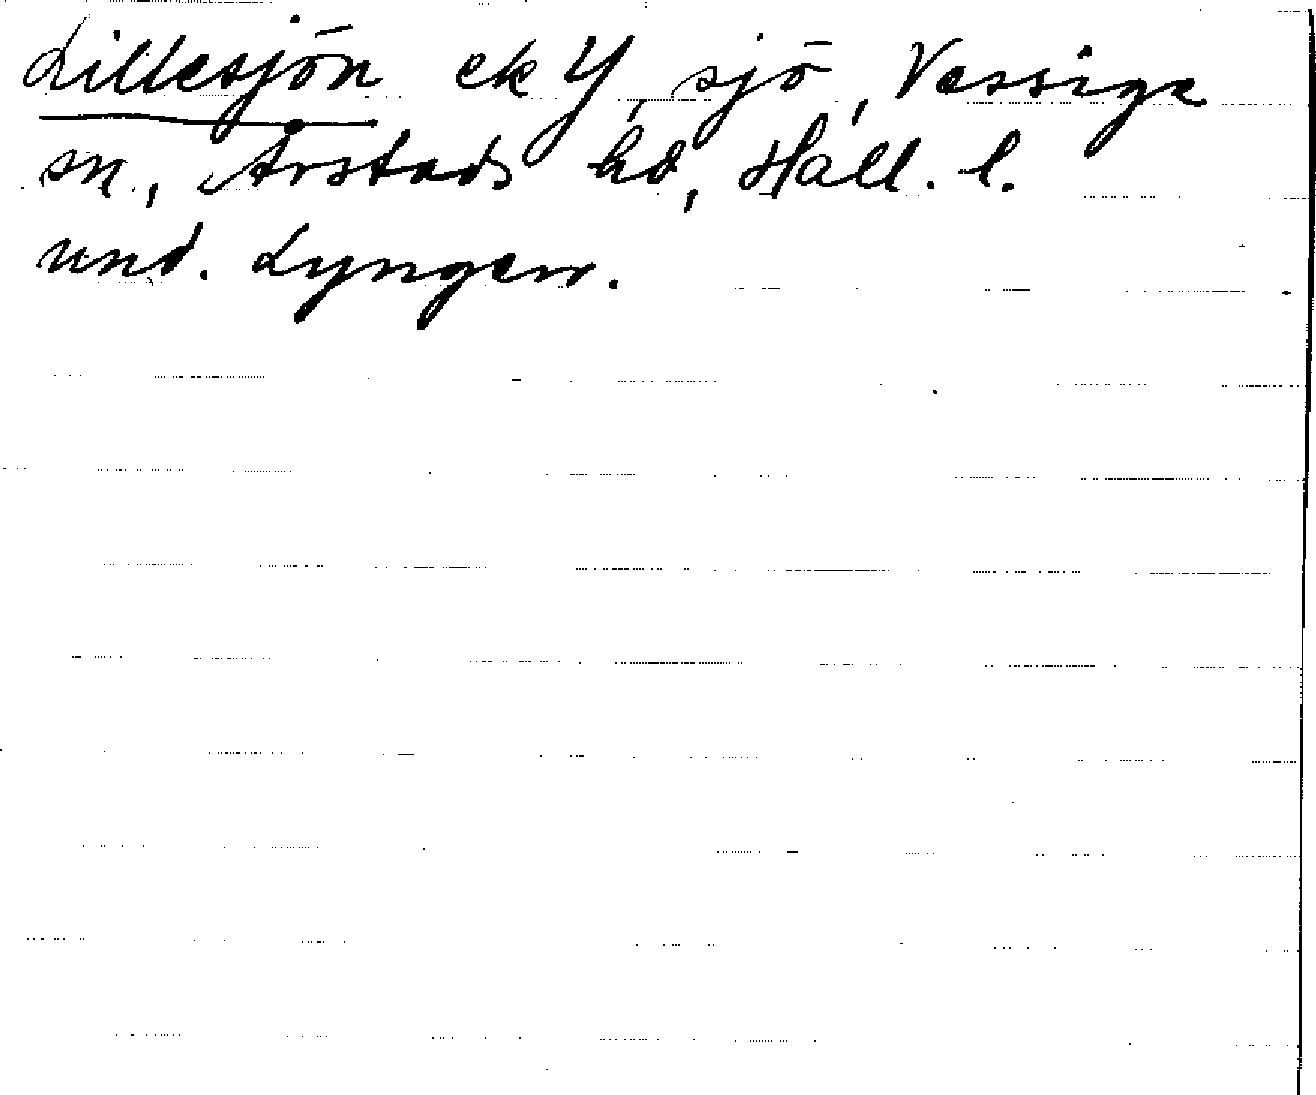 Lillesjön ek Y, sjö, Vessige
sn, Årstads hd, Hall. l.
und. Lyngen.